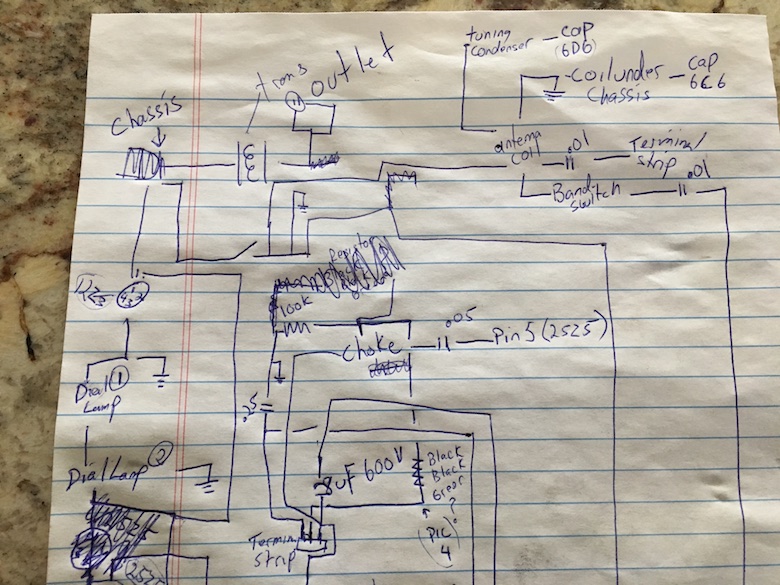 tuning
condenser - cap
(6D6)
-Coil under - cap
chassis 6C6
trans
outlet
chassis
antenna
coil .01 Terminal
strip
Band
switch .01
100K
choke .05 Pin 5 (2525)
.25
Dial 1
Lamp
Dial Lamp 2
8uF 600V
Black
Black
Green
?
(PIC
4)
Terminal
strip
(2525